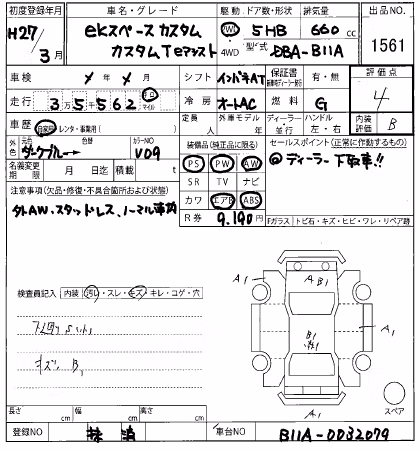 初度登録年月 車名・グレード 駆動 ドア数・形状 排気量 出品NO
H27/3月 ekスペース カスタム カスタムTeアシスト 2WD 4WD 5HB 660cc 1561
型式 DBA-B11A
車検 シフト インパネAT 保証書 有・無 評価点 4
走行 35562 キロ マイル 冷房 オートAC 燃料 G
車歴 自家用 レンタ・事業用( ) 定員 人 外国モデル ディーラー 並行 ハンドル 左・右 内装評価 B
外色 元色 ダークブルー 色替 カラーNO V09 装備品(純正品に限る) セールスポイント(正常に作動するもの)
名義変更期限 月 日迄 積載 t PS PW AW ◎ディーラー下取車!!
注意事項(欠品・修復・不具合箇所および状態) SR TV ナビ
社外AW、スタッドレス、ノーマル カワ エアB ABS
R券 9.190円 Fガラス トビ石・キズ・ヒビ・ワレ・リペア跡
検査員記入 内装 汚レ・スレ・キズ・キレ・コゲ・穴
A1 A.B1 A1
B1
A1
A1
キズ B
スペア
長さ cm 幅 cm 高さ cm
登録NO 抹消 車台NO B11A-0032079